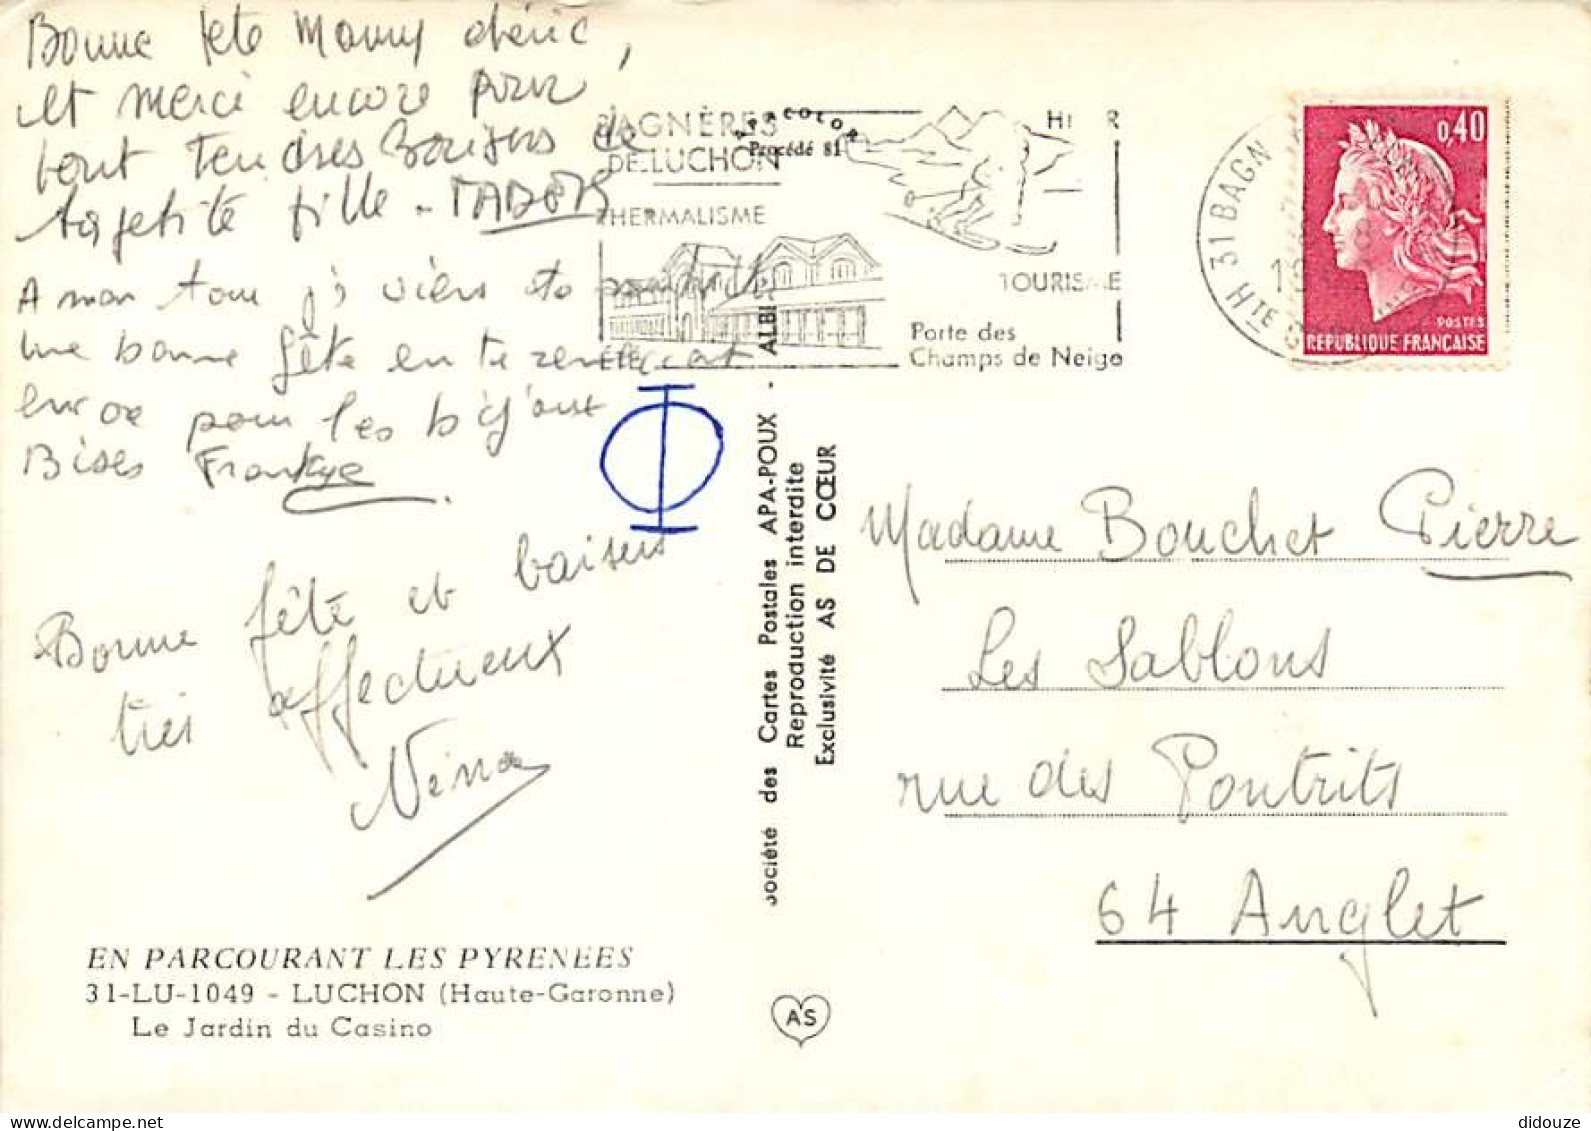 Bonne fete Mamy chérie,
et merci encore pour
tout Tendres Baisers de
ta petite fille -
A mon tour je viens te
une bonne fête en te remerciant
encore pour les bijoux
Bises Frankye
Bonne fête et baisers
très affectueux
Nina
EN PARCOURANT LES PYRENEES
31-LU-1049 - LUCHON (Haute-Garonne)
Le Jardin du Casino
BAGNÈRES
DE LUCHON
THERMALISME
ÉTÉ
HIVER
TOURISME
Porte des
Champs de Neige
APACOLOR
Procédé 81
Société des Cartes Postales APA-POUX - ALBI
Reproduction interdite
Exclusivité AS DE CŒUR
AS
31 BAGN
HTE G
0,40
POSTES
REPUBLIQUE FRANÇAISE
Madame Bouchet Pierre
Les Sablons
rue des Pontrits
64 Anglet
didouze